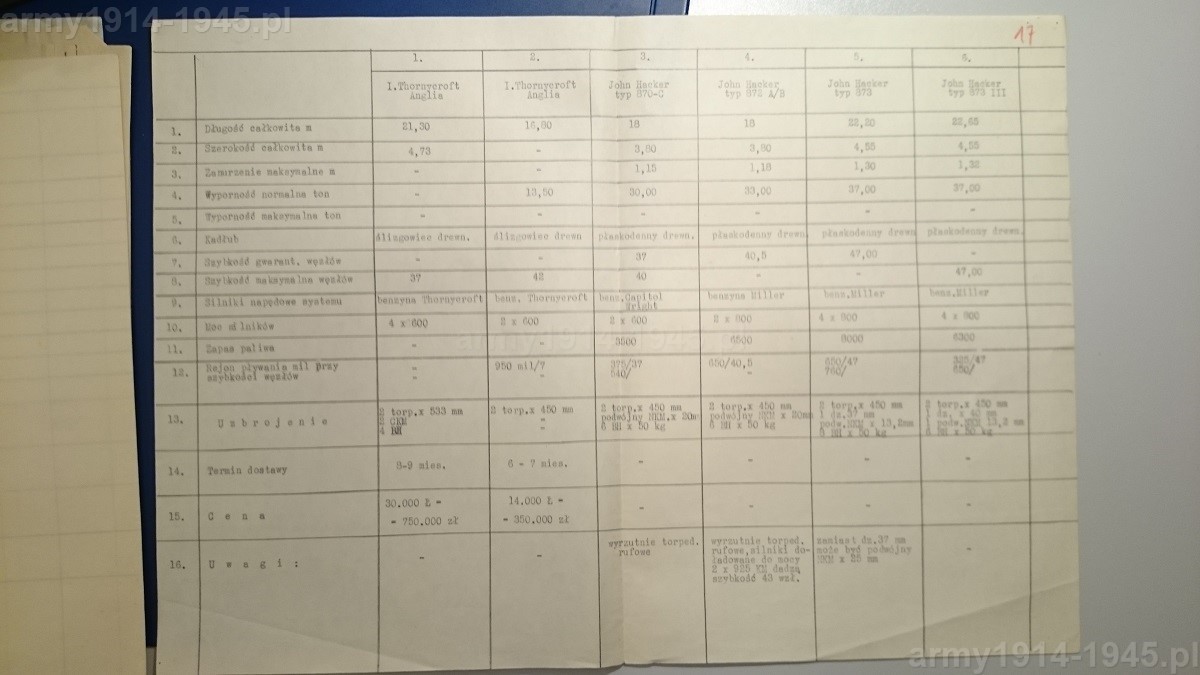 army1914-1945.pl
17
1. 2. 3. 4. 5. 6.
I.Thornycroft I.Thornycroft John Hacker John Hacker John Hacker John Hacker
Anglia Anglia typ 870-C typ 872 A/B typ 873 typ 873 III
1. Długość całkowita m 21,30 16,80 18 18 22,20 22,65
2. Szerokość całkowita m 4,73 - 3,80 3,80 4,55 4,55
3. Zanurzenie maksymalne m - - 1,15 1,18 1,30
4. Wyporność normalna ton - 13,50 30,00 33,00 37,00 37,00
5. Wyporność maksymalna ton - - - - - -
6. Kadłub ślizgowiec drewn. ślizgowiec drewn płaskodenny drewn. płaskodenny drewn. płaskodenny drewn. płaskodenny drewn.
7. Szybkość gwarant. węzłów - - 37 40,5 47,00 -
8. Szybkość maksymalna węzłów 37 42 40 - - 47,00
9. Silniki napędowe systemu benzyna Thornycroft benz. Thornycroft benz.Capitol benzyna Miller benz.Miller benz.Miller
Wright
10. Moc silników 4 x 600 2 x 600 2 x 600 2 x 800 4 x 800 4 x 800
11. Zapas paliwa - - 3500 6500 6000 6300
12. Rejon pływania mil przy - 950 mil/7 375/37 650/40,5 650/47 325/47
szybkości węzłów - - 540/ - 780/ 650/
13. Uzbrojenie 2 torp.x 533 mm 2 torp.x 450 mm 2 torp.x 450 mm 2 torp.x 450 mm 2 torp.x 450 mm 2 torp.x 450 mm
2 CKM - podwójny NKM.x 20m podwójny NKM x 20mm 1 dz.37 mm 1 dz. x 40 mm
4 BH - 6 BH x 50 kg 6 BH x 50 kg podw.NKM x 13,2mm 1 podw.NKM 13,2 mm
6 BH x 50 kg 6 BH x 50 kg
14. Termin dostawy 8-9 mies. 6 - 7 mies. - - - -
15. Cena 30.000 Ł - 14.000 Ł - - - - -
- 750.000 zł - 350.000 zł
16. Uwagi: - - wyrzutnie torped. wyrzutnie torped. zamiast dz.37 mm -
rufowe rufowe,silniki do- może być podwójny
ładowane do mocy NKM x 25 mm
2 x 925 KM dadzą
szybkość 43 wzł.
army1914-1945.pl
army1914-1945.pl